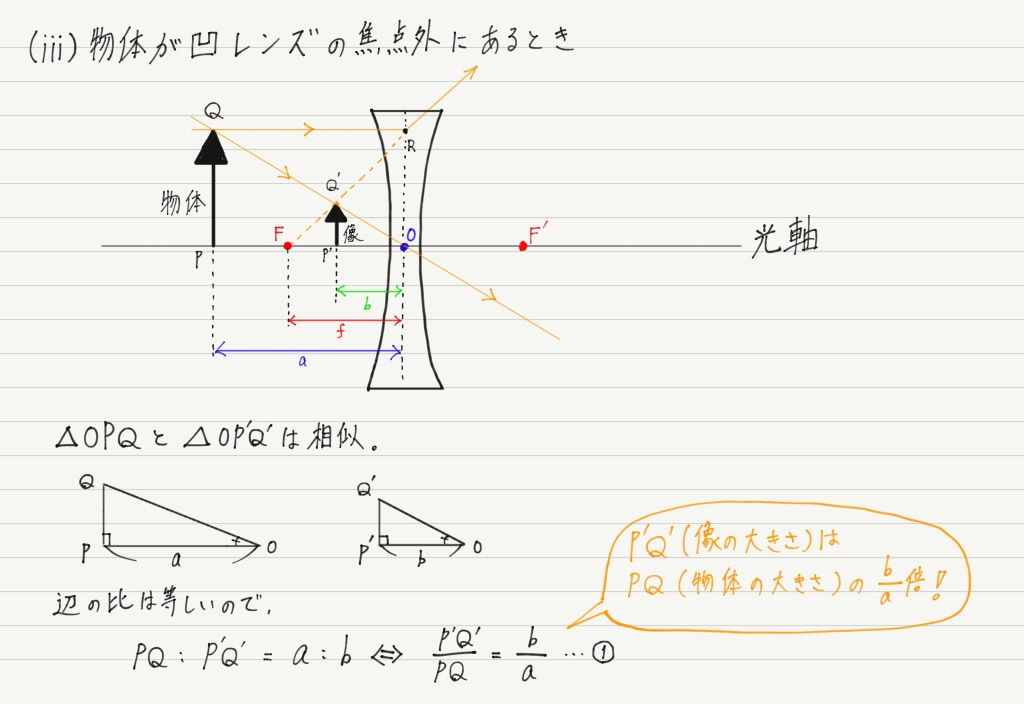 (iii) 物体が凹レンズの焦点外にあるとき
Q
R
Q'
物体
像
F
O
F'
光軸
P
P'
b
f
a
△OPQと△OP'Q'は相似。
Q
P
a
O
Q'
P'
b
O
P'Q'(像の大きさ)は
PQ(物体の大きさ)の b/a 倍!
辺の比は等しいので,
PQ : P'Q' = a : b ⇔ P'Q'/PQ = b/a …①